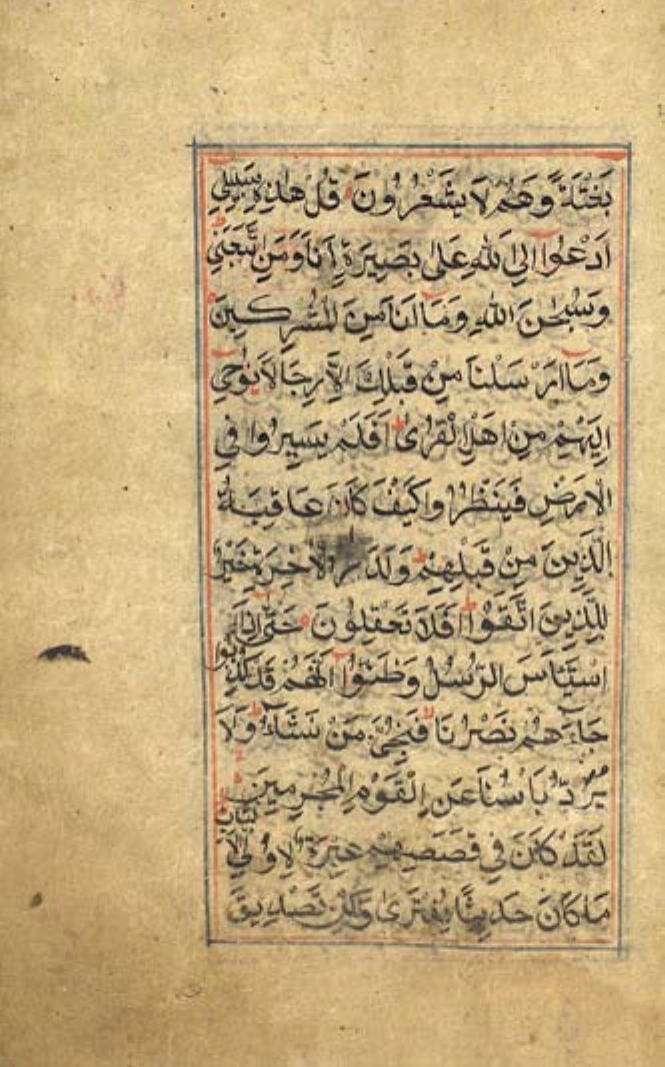 بَغْتَةً وَهُمْ لَا يَشْعُرُونَ قُلْ هٰذِهٖ سَبِيلِي
اَدْعُوا اِلَى اللهِ عَلٰى بَصِيرَةٍ اَنَا وَمَنِ اتَّبَعَنِي
وَسُبْحٰنَ اللهِ وَمَا اَنَا مِنَ الْمُشْرِكِينَ
وَمَا اَرْسَلْنَا مِنْ قَبْلِكَ اِلَّا رِجَالًا يُوحِي
اِلَيْهِمْ مِنْ اَهْلِ الْقُرٰى اَفَلَمْ يَسِيرُوا فِي
الْاَرْضِ فَيَنْظُرُوا كَيْفَ كَانَ عَاقِبَةُ
الَّذِينَ مِنْ قَبْلِهِمْ وَلَدَارُ الْاٰخِرَةِ خَيْرٌ
لِلَّذِينَ اتَّقَوْا اَفَلَا تَعْقِلُونَ حَتّٰى اِذَا
اسْتَيْاَسَ الرُّسُلُ وَظَنُّوا اَنَّهُمْ قَدْ كُذِبُوا
جَاءَهُمْ نَصْرُنَا فَنُجِّيَ مَنْ نَشَاءُ وَلَا
يُرَدُّ بَاْسُنَا عَنِ الْقَوْمِ الْمُجْرِمِينَ
لَقَدْ كَانَ فِي قَصَصِهِمْ عِبْرَةٌ لِاُولِي الْاَلْبَابِ
مَا كَانَ حَدِيثًا يُفْتَرٰى وَلٰكِنْ تَصْدِيقَ